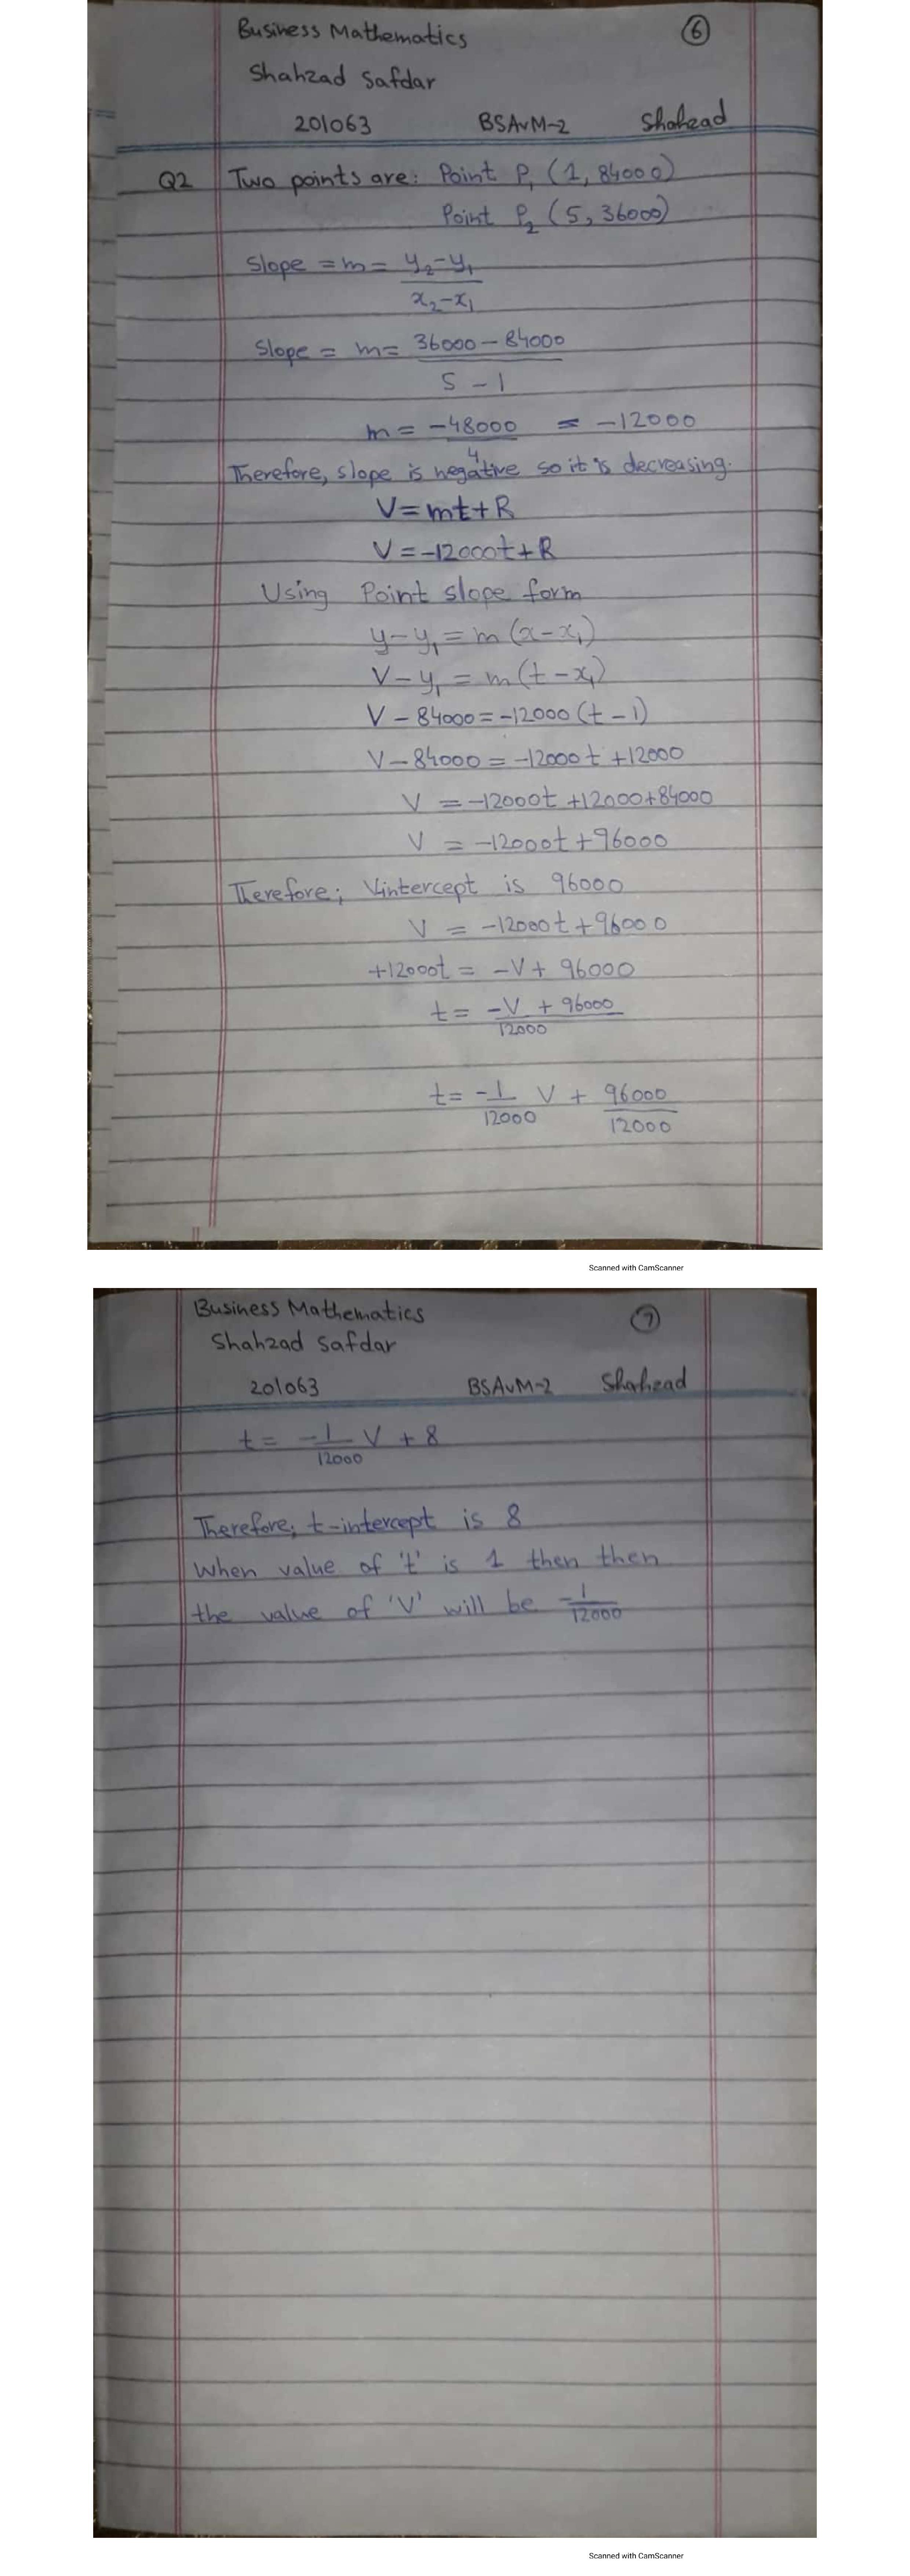 Business Mathematics 6
Shahzad Safdar
201063 BSAvM-2 Shahzad
Q2 Two points are: Point P₁ (1, 84000)
Point P₂ (5, 36000)
Slope = m = y₂-y₁
x₂-x₁
Slope = m= 36000 - 84000
5 - 1
m = -48000 = -12000
4
Therefore, slope is negative so it is decreasing.
V=mt+R
V=-12000t+R
Using Point slope form
y-y₁ = m (x-x₁)
V-y₁ = m(t-x₁)
V - 84000 = -12000 (t-1)
V-84000 = -12000t +12000
V = -12000t +12000+84000
V = -12000t +96000
Therefore; Vintercept is 96000
V = -12000t +96000
+12000t = -V + 96000
t = -V + 96000
12000
t= -1 V + 96000
12000 12000
Scanned with CamScanner
Business Mathematics 7
Shahzad Safdar
201063 BSAvM-2 Shahzad
t = -1 V + 8
12000
Therefore; t-intercept is 8
When value of 't' is 1 then then
the value of 'V' will be -1
12000
Scanned with CamScanner